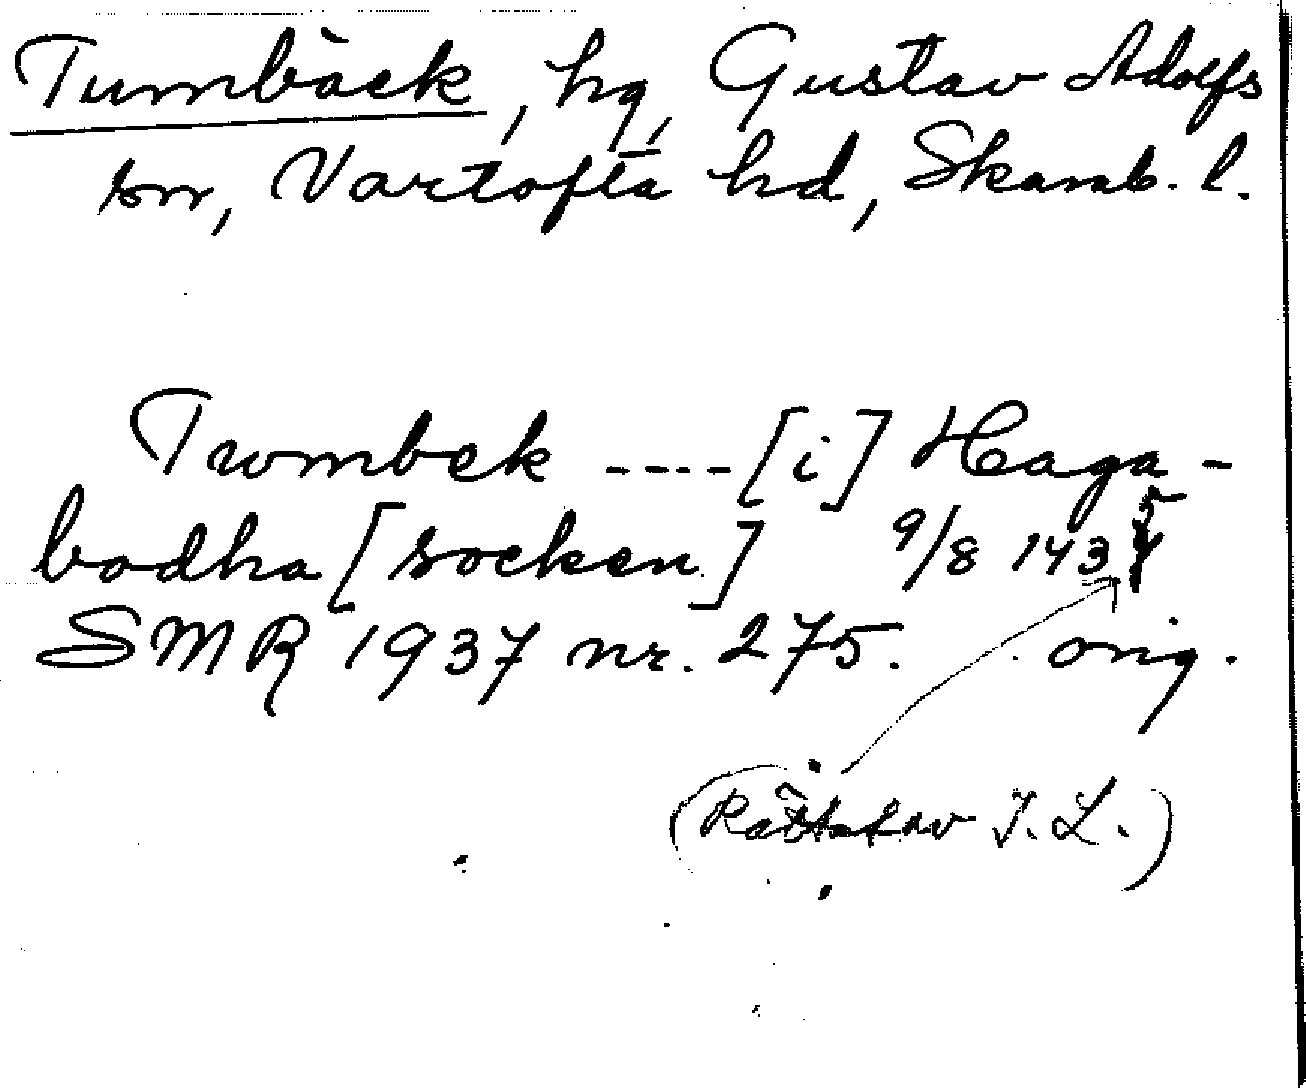 Tumbäck, hg, Gustav Adolfs
sn, Vartofta hd, Skarab. l.
Twmbek ---- [i] Haga-
bodha [socken] 9/8 1435
SMR 1937 nr. 275. orig.
(Rättat av I. L.)